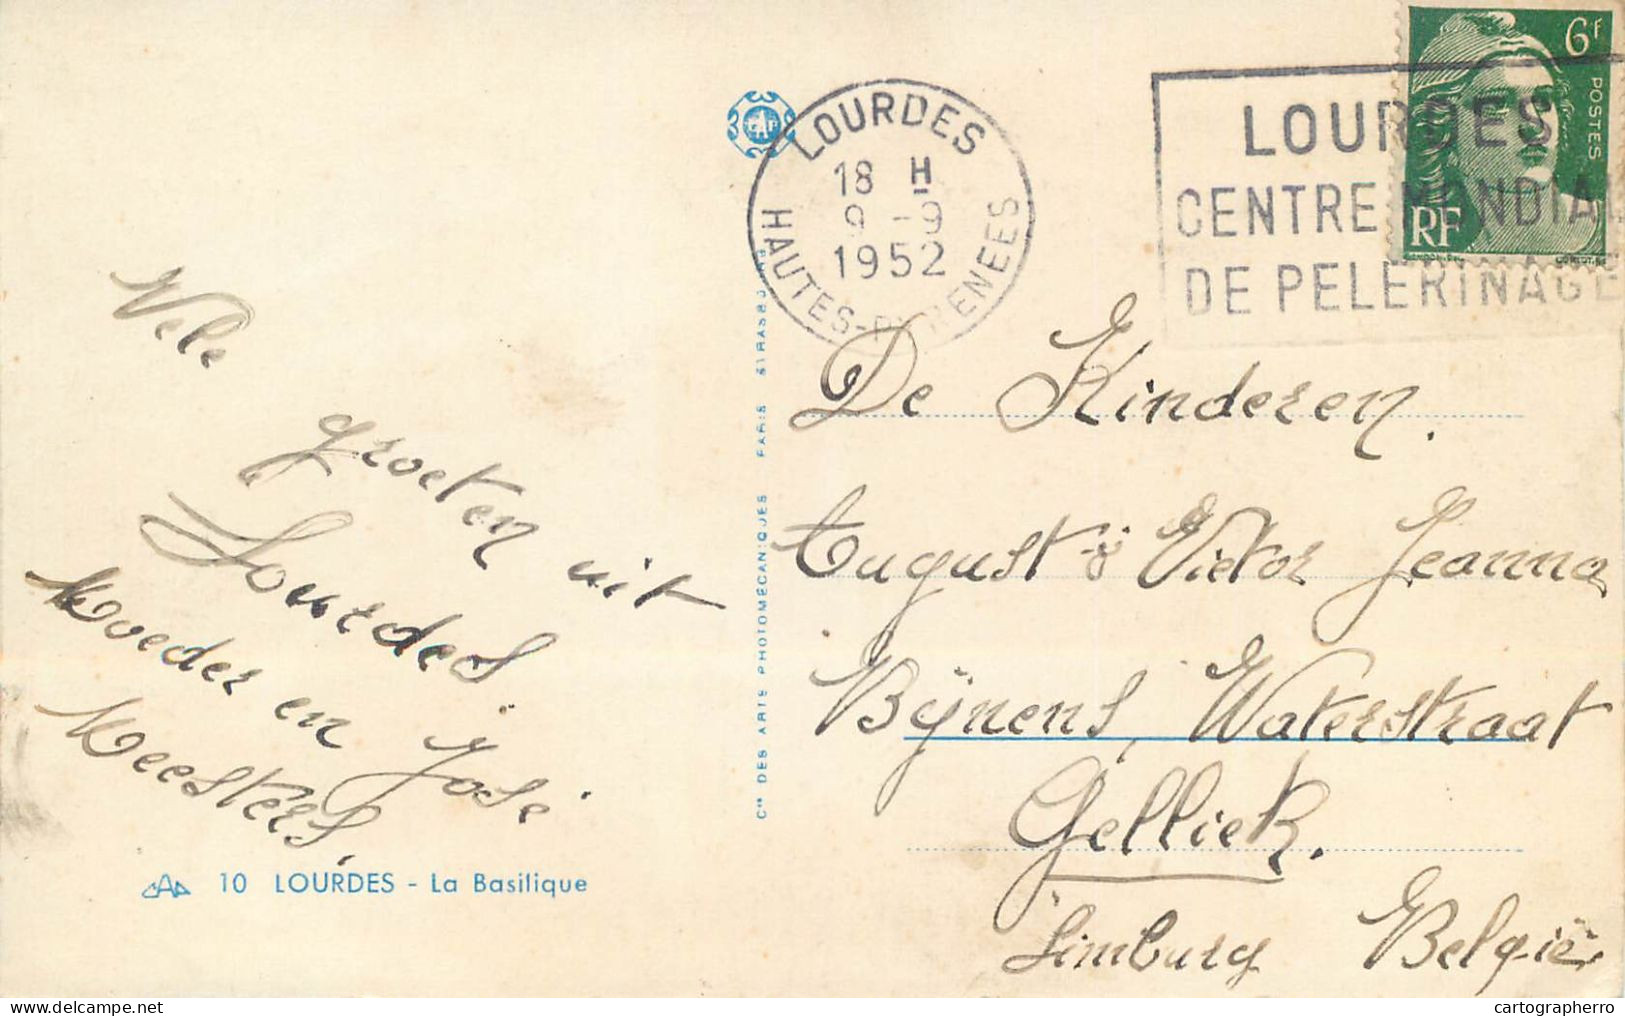 LOURDES
18 H
9 - 9
1952
HAUTES-PYRENEES
LOURDES
CENTRE MONDIAL
DE PELERINAGE
6F
POSTES
RF
Vele
groeten uit
Lourdes.
Moeder en José
Meesters.
De Kinderen.
August & Victor Jeanna
Bÿnens, Waterstraat
Gelliek.
Limburg België
Cie DES ARTS PHOTOMÉCANIQUES PARIS STRASBOURG
CAP 10 LOURDES - La Basilique
cartographerro